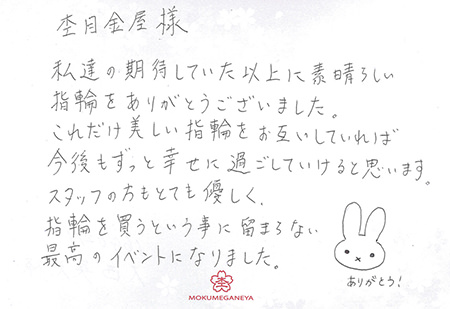 杢目金屋 様
私達の期待していた以上に素晴らしい
指輪をありがとうございました。
これだけ美しい指輪をお互いしていれば
今後もずっと幸せに過ごしていけると思います。
スタッフの方もとても優しく、
指輪を買うという事に留まらない
最高のイベントになりました。
ありがとう!
杢
MOKUMEGANEYA